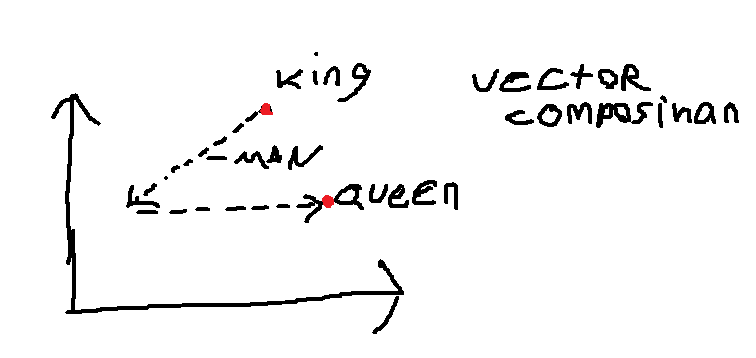 King
VECTOR
COMPOSINAN
-MAN
QUEEN